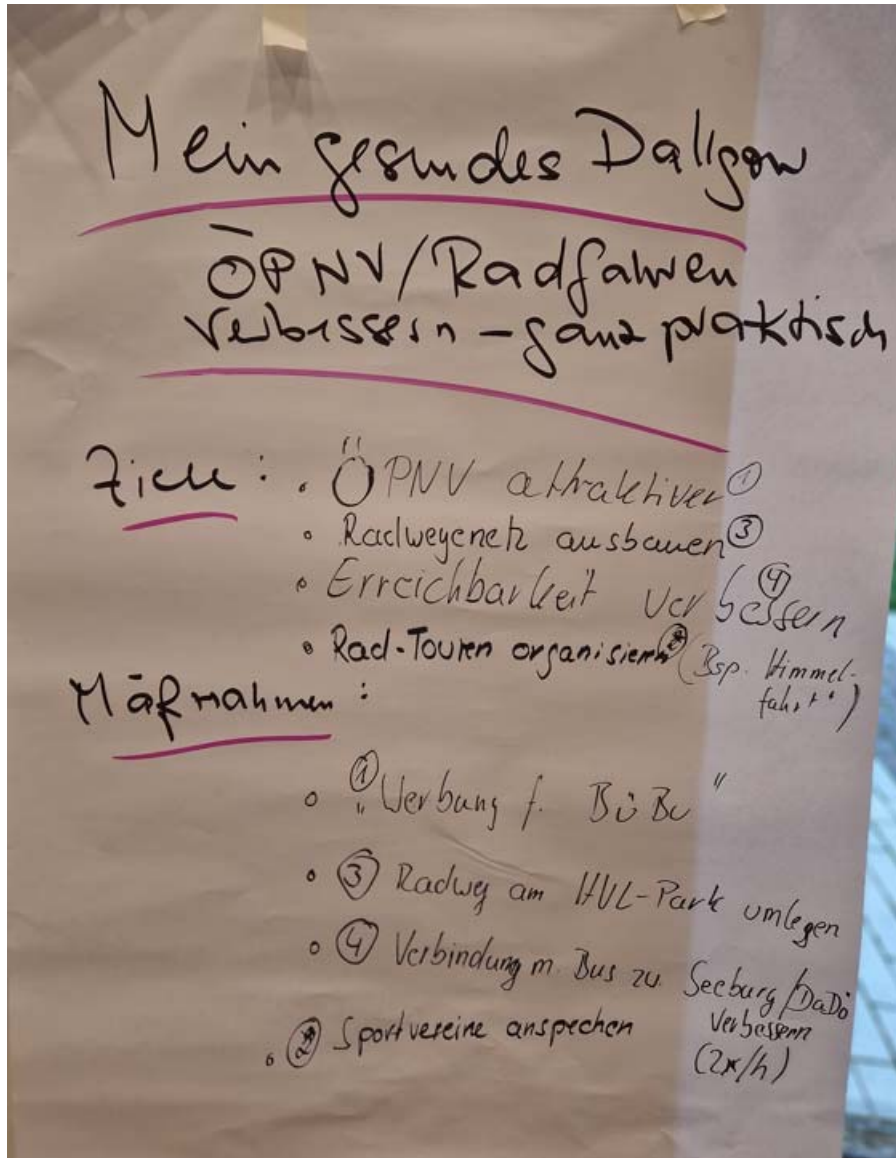 Mein gesundes Dallgow
ÖPNV/Radfahren
verbessern - ganz praktisch
Ziele: • ÖPNV attraktiver ①
• Radwegenetz ausbauen ③
• Erreichbarkeit verbessern ④
• Rad-Touren organisieren ② (Bsp. Himmel-
fahrt")
Maßnahmen:
• ① "Werbung f. BüBu"
• ③ Radweg am HVL-Park umlegen
• ④ Verbindung m. Bus zu Seeburg/DaDö
verbessern
(2x/h)
• ② Sportvereine ansprechen